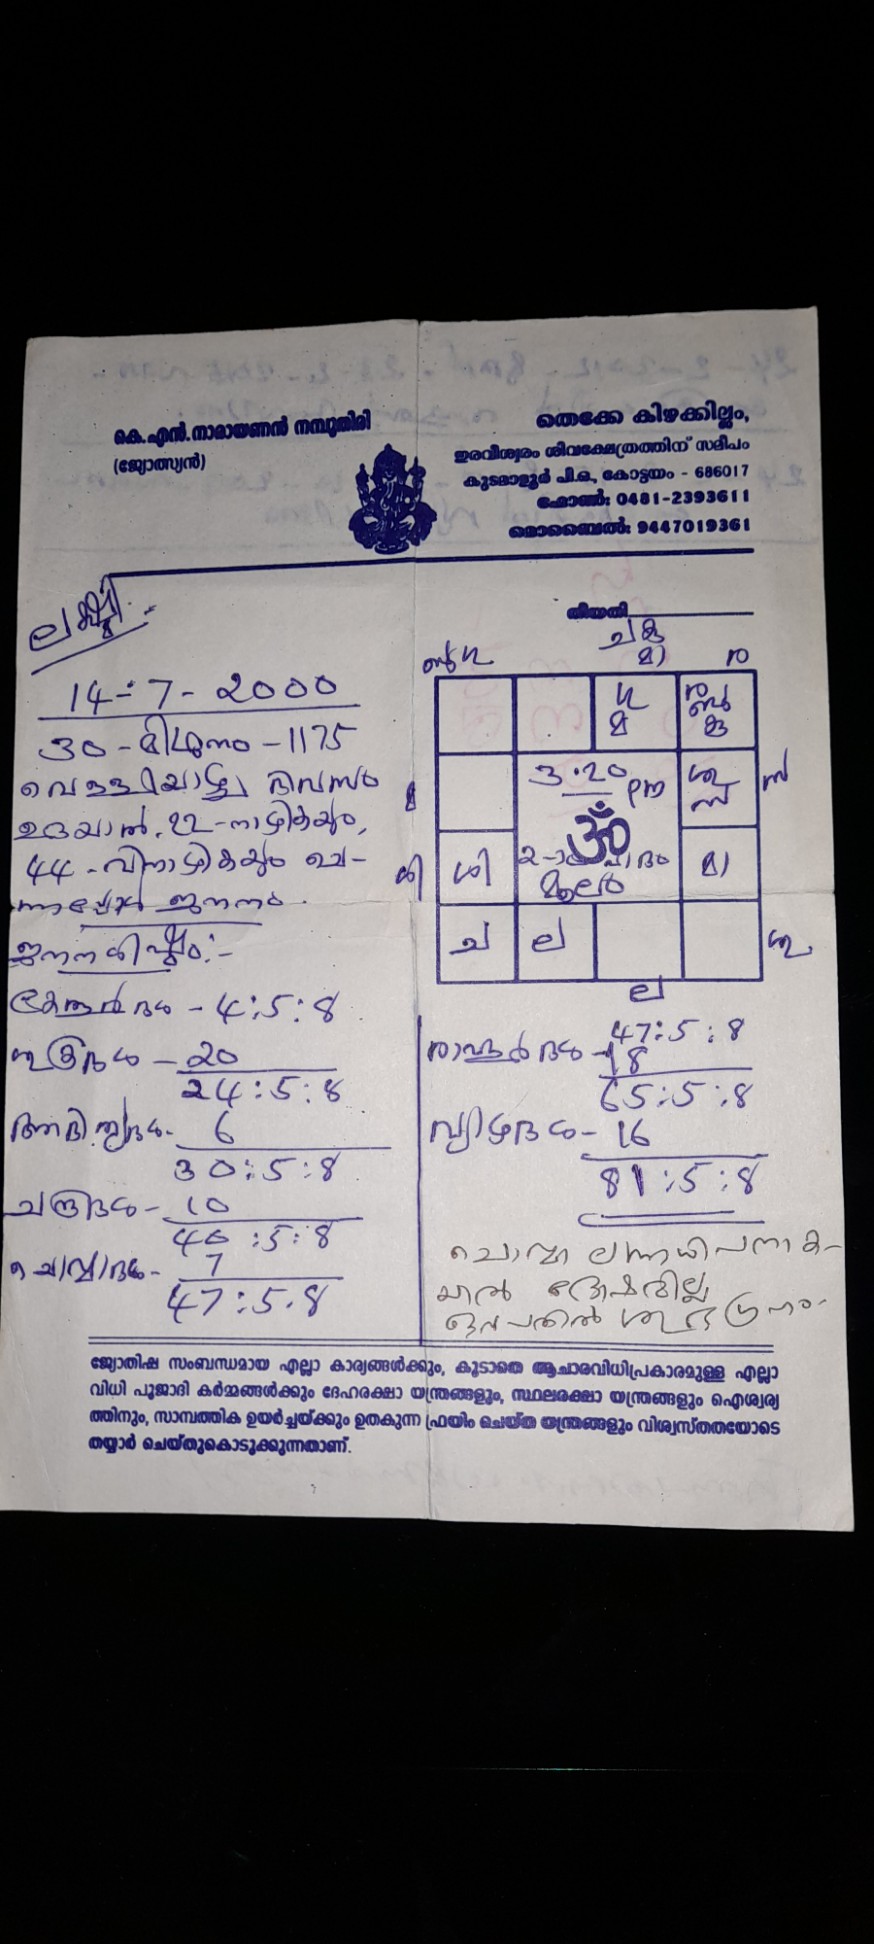 കെ.എൻ.നാരായണൻ നമ്പൂതിരി
(ജ്യോത്സ്യൻ)
തെക്കേ കിഴക്കില്ലം,
ഇരവീശ്വരം ശിവക്ഷേത്രത്തിന് സമീപം
കുടമാളൂർ പി.ഒ, കോട്ടയം - 686017
ഫോൺ: 0481-2393611
മൊബൈൽ: 9447019361
ലക്ഷ്മി
തീയതി
14-7-2000
30-മിഥുനം-1175
വെള്ളിയാഴ്ച ദിവസം
ഉദയാൽ 22-നാഴികയും,
44-വിനാഴികയും ചെ-
ന്നപ്പോൾ ജനനം.
ജനനശിഷ്ടം:-
കേതുർദശ - 4:5:8
ശുക്രദശ - 20
24:5:8
ആദിത്യദശ - 6
30:5:8
ചന്ദ്രദശ - 10
40:5:8
ചൊവ്വാദശ - 7
47:5:8
മാ
ര
ഗു
മ
3.20 pm
ॐ
മൂലം
ശി
ശി
മാ
ച
ല
ല
47:5:8
രാഹുർദശ - 18
65:5:8
വ്യാഴദശ - 16
81:5:8
ചൊവ്വാ ലഗ്നാധിപനാക-
യാൽ ദോഷമില്ല
ജ്യോതിഷ സംബന്ധമായ എല്ലാ കാര്യങ്ങൾക്കും, കൂടാതെ ആചാരവിധിപ്രകാരമുള്ള എല്ലാ
വിധി പൂജാദി കർമ്മങ്ങൾക്കും ദേഹരക്ഷാ യന്ത്രങ്ങളും, സ്ഥലരക്ഷാ യന്ത്രങ്ങളും ഐശ്വര്യ
ത്തിനും, സാമ്പത്തിക ഉയർച്ചയ്ക്കും ഉതകുന്ന ഫ്രയിം ചെയ്ത യന്ത്രങ്ങളും വിശ്വസ്തതയോടെ
തയ്യാർ ചെയ്തുകൊടുക്കുന്നതാണ്.